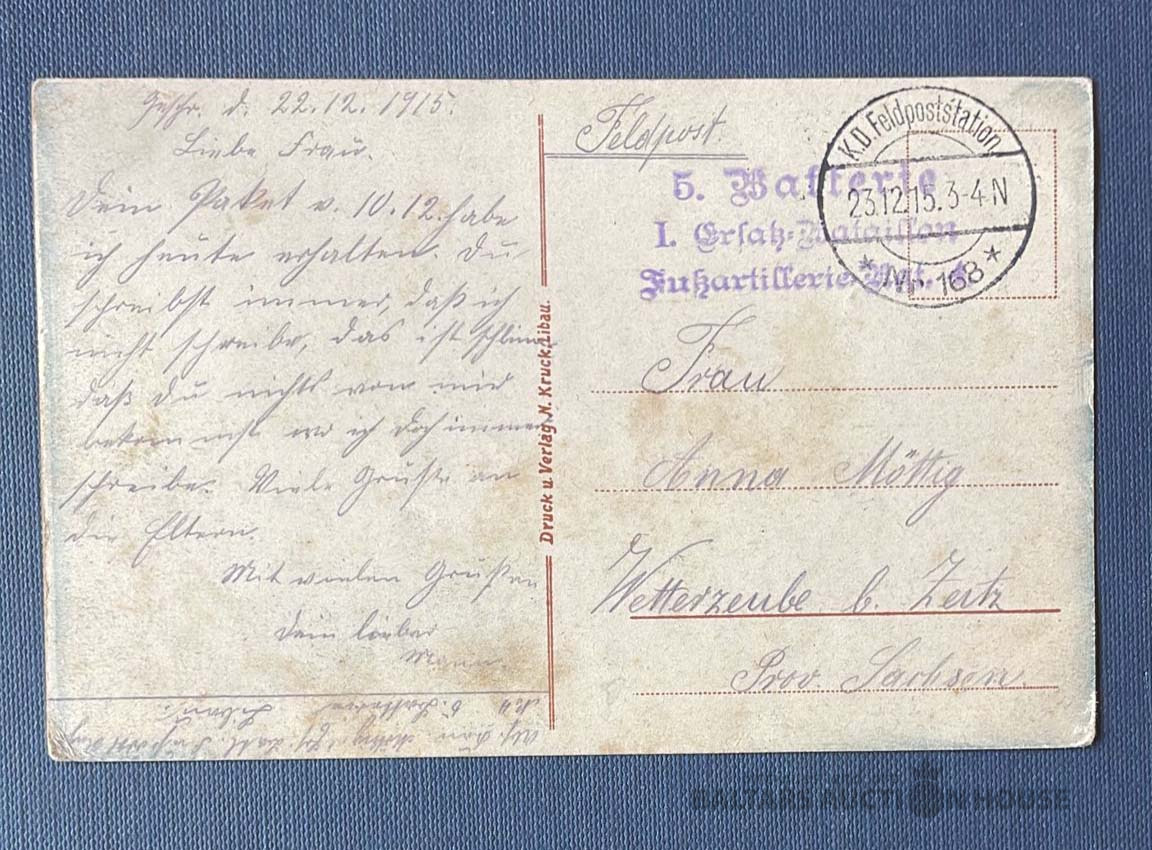 Geschr. d. 22.12.1915.
Liebe Frau.
Dein Paket v. 10.12. habe
ich heute erhalten. Du
schreibst immer, daß ich
nicht schreibe, das ist schlimm
daß du nichts von mir
bekommst wo ich doch immer
schreibe. Viele Grüße an
die Eltern.
Mit vielen Grüßen
Dein lieber
Mann.
5. Batterie Libau
Feldpost.
K.D. Feldpoststation
23.12.15. 3-4 N
* Nr. 168 *
5. Batterie
I. Ersatz-Bataillon
Fußartillerie-Regt.
Frau
Anna Möttig
Wetterzeube b. Zeitz
Prov. Sachsen.
Druck u. Verlag N. Kruck, Libau.
BALTARS AUCTION HOUSE